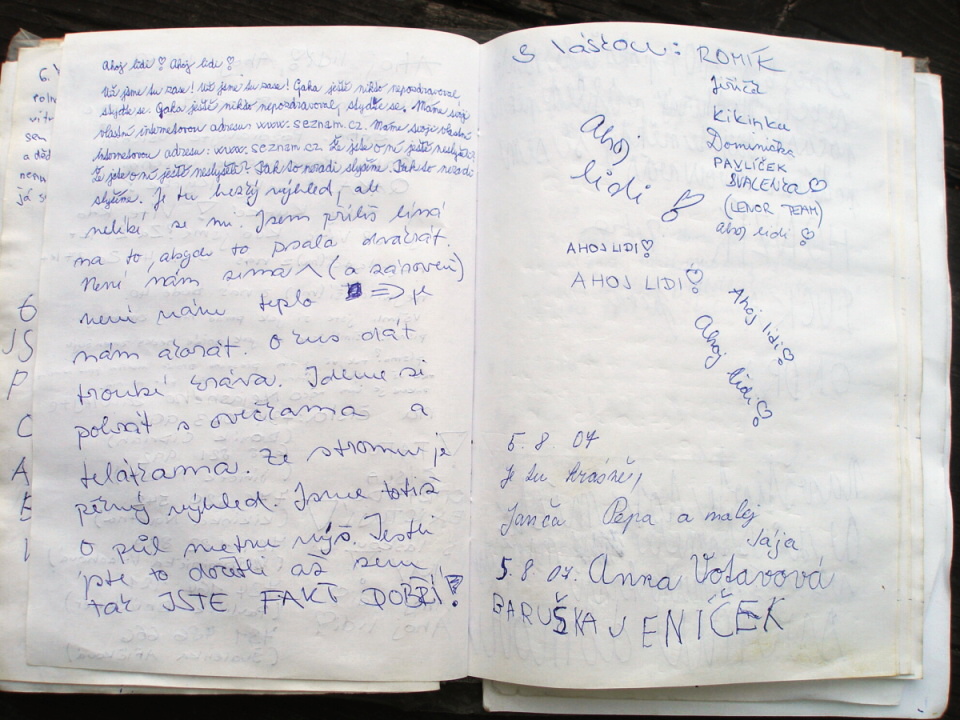 Ahoj lidi! Ahoj lidi!
Už jsme tu zase! Už jsme tu zase! Gaka ještě nikto nepozdravoval,
slyďte se. Gaka ještě nikto nepozdravoval, slyďte se. Máme svoje
vlastní internetovou adresu: www.seznam.cz. Máme svoje vlastní
internetovou adresu: www.seznam.cz. Že jste o ní ještě neslyšeli?
Že jste o ní ještě neslyšeli? Tak to neradi slyšíme. Tak to neradi
slyšíme. Je tu hezký výhled, ale
nelíbí se mi. Jsem příliš líná
na to, abych to psala dvakrát.
Není nám zima (a zároveň)
není nám teplo => je
nám akorát. O kus dál
troubí kráva. Jdeme si
pokrát s ovečkama a
telátkama. Ze stromu je
pěkný výhled. Jsme totiž
o půl metru výš. Jestli
jste to dočetli až sem
tak JSTE FAKT DOBŘÍ!
6. V
a děd
já s
6
JS
P
C
A
E
I
S láskou: ROMÍK
Jiřičă
Kikinka
Dominička
PAVLÍČEK
SVALENKA
(LENOR TEAM)
ahoj lidi!
Ahoj
lidi!
AHOJ LIDI!
AHOJ LIDI!
Ahoj lidi!
Ahoj lidi!
5. 8. 07
Je tu krásně,
Janča Pepa a malej
Jája
5. 8. 07. Anna Votavová
BARUŠKA JENÍČEK